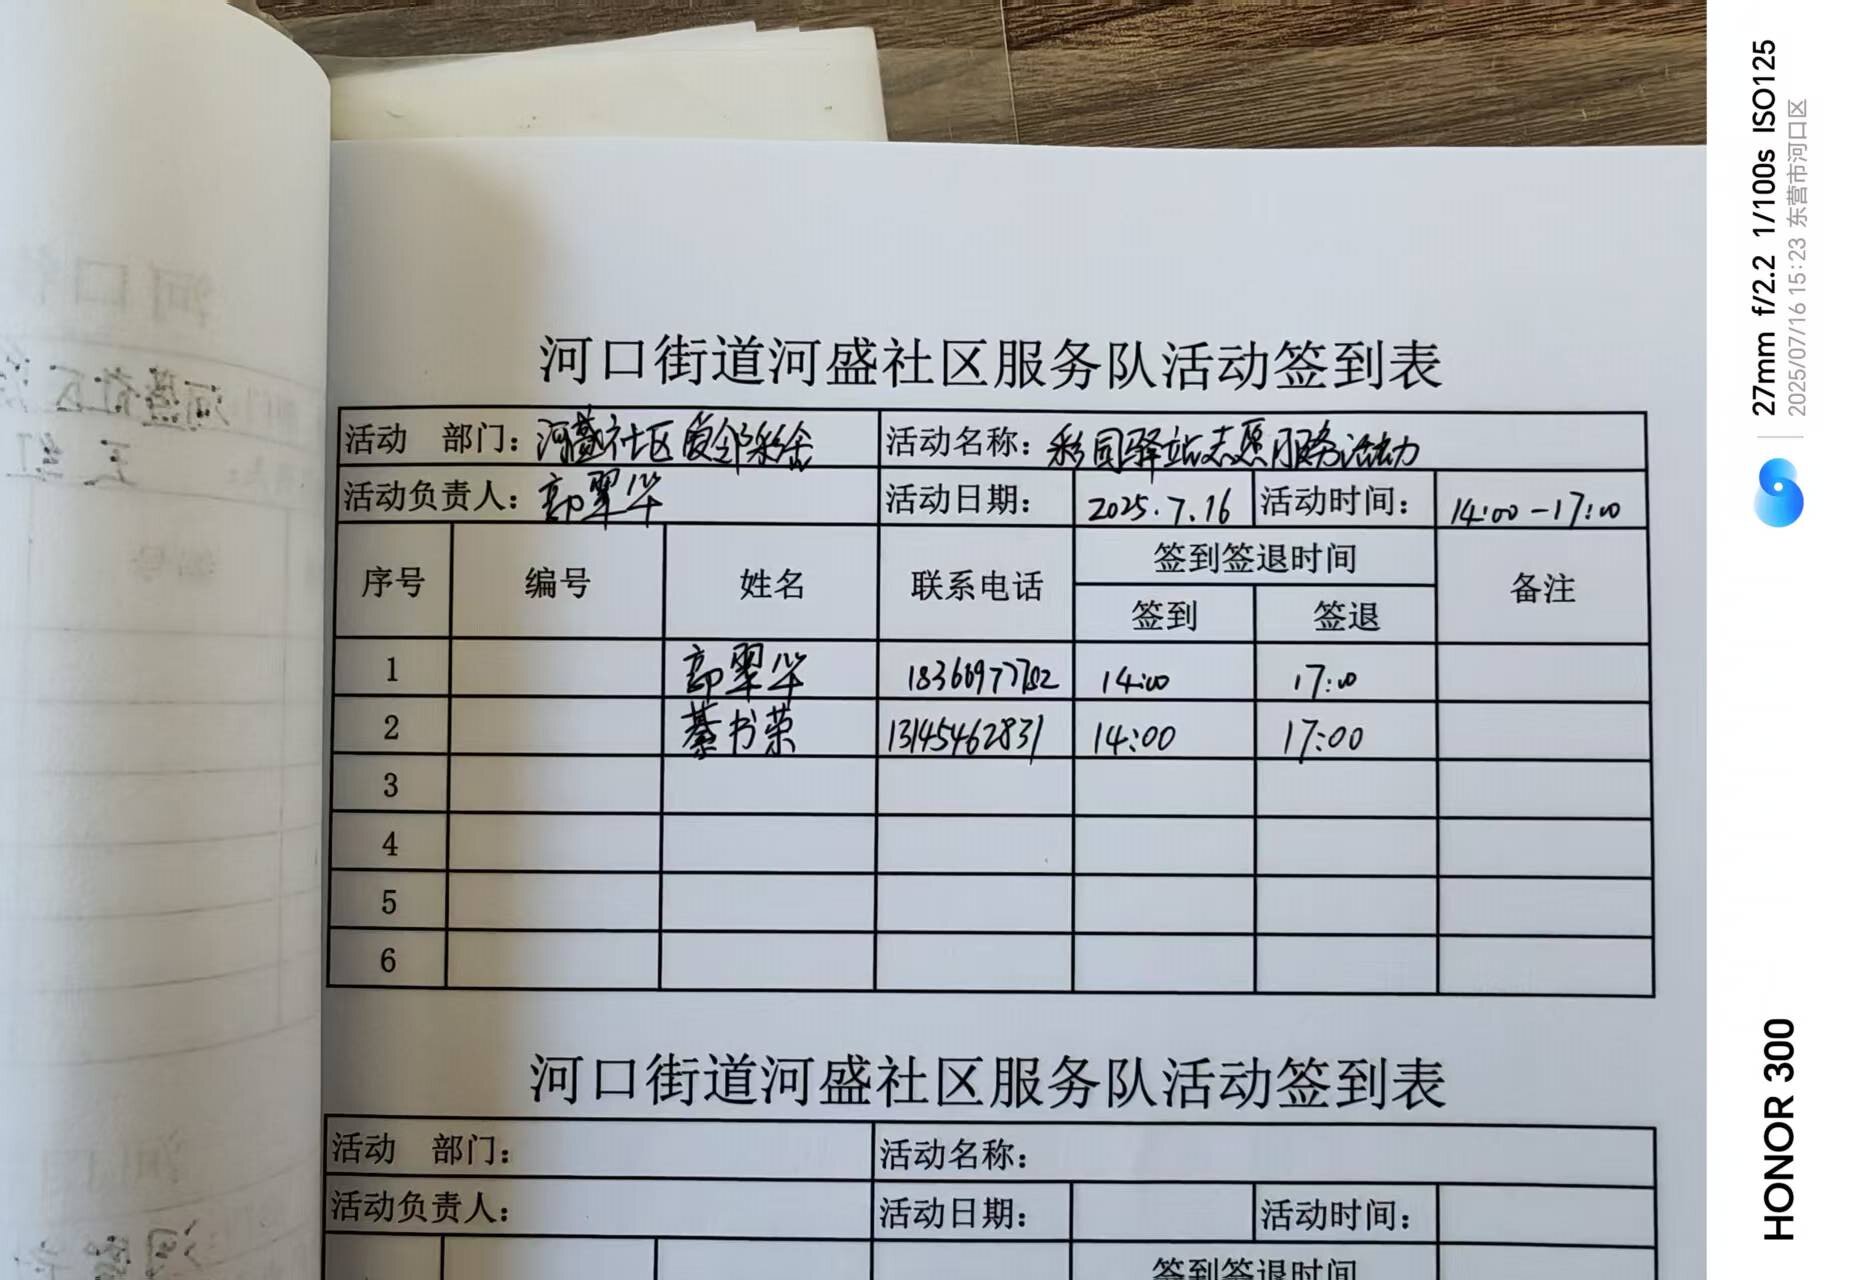 河口街道河盛社区服务队活动签到表
活动 部门：河盛社区良邻彩绘
活动名称：彩园驿站志愿服务活动
活动负责人：郭翠华
活动日期：
2025.7.16
活动时间：
14:00-17:00
序号
编号
姓名
联系电话
签到签退时间
签到
签退
备注
1
郭翠华
14:00
17:00
2
綦书荣
13145462831
14:00
17:00
3
4
5
6
河口街道河盛社区服务队活动签到表
活动 部门：
活动名称：
活动负责人：
活动日期：
活动时间：
签到签退时间
27mm f/2.2 1/100s ISO125
2025/07/16 15:23 东营市河口区
HONOR 300